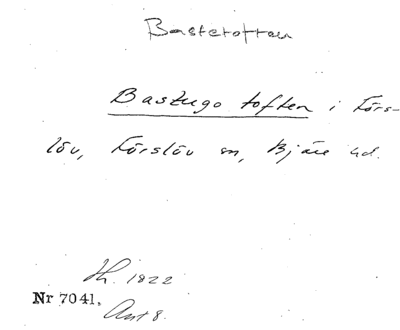 Bastetoften
Bastugo toften i Förs-
löv, Förslöv sn, Bjäre hd.
Jh. 1822
Nr 7041. Akt 8.